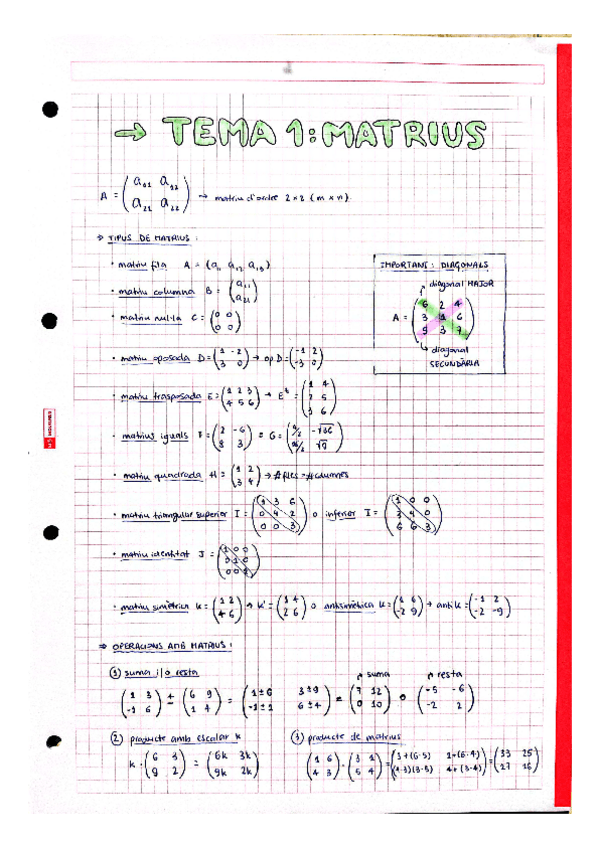 → TEMA 1: MATRIUS
A = (a₁₁ a₁₂ / a₂₁ a₂₂) → matriu d'ordre 2×2 (m×n).
⇒ TIPUS DE MATRIUS:
· matriu fila A = (a₁₁ a₁₂ a₁₃)
· matriu columna B = (a₁₁ / a₂₁)
· matriu nul·la C = (0 0 / 0 0)
IMPORTANT: DIAGONALS
diagonal MAJOR
A = (6 2 4 / 3 1 6 / 9 3 7)
diagonal
SECUNDÀRIA
· matriu oposada D = (1 -2 / 3 0) → op D = (-1 2 / -3 0)
· matriu trasposada E = (1 2 3 / 4 5 6) → Eᵗ = (1 4 / 2 5 / 3 6)
· matrius iguals F = (2 -6 / 8 3) = G = (4/2 -√36 / 16/2 √9)
· matriu quadrada H = (1 2 / 3 4) → #files = #columnes
· matriu triangular superior I = (1 3 6 / 0 4 2 / 0 0 3) o inferior I = (1 0 0 / 3 4 0 / 6 6 3)
· matriu identitat J = (1 0 0 / 0 1 0 / 0 0 1)
· matriu simètrica K = (1 2 / 4 6) → K' = (1 4 / 2 6) o antisimètrica K = (1 6 / -2 9) + anti K = (-1 2 / -2 -9)
⇒ OPERACIONS AMB MATRIUS:
① suma i/o resta
suma
resta
(1 3 / -1 6) ± (6 9 / 1 4) = (1±6 3±9 / -1±1 6±4) = (7 12 / 0 10) o (-5 -6 / -2 2)
② producte amb escalar k
k · (6 3 / 9 2) = (6k 3k / 9k 2k)
③ producte de matrius
(1 6 / 4 3) · (3 1 / 5 4) = (3+(6·5) 1+(6·4) / (4·3)(3·5) 4+(3·4)) = (33 25 / 27 16)